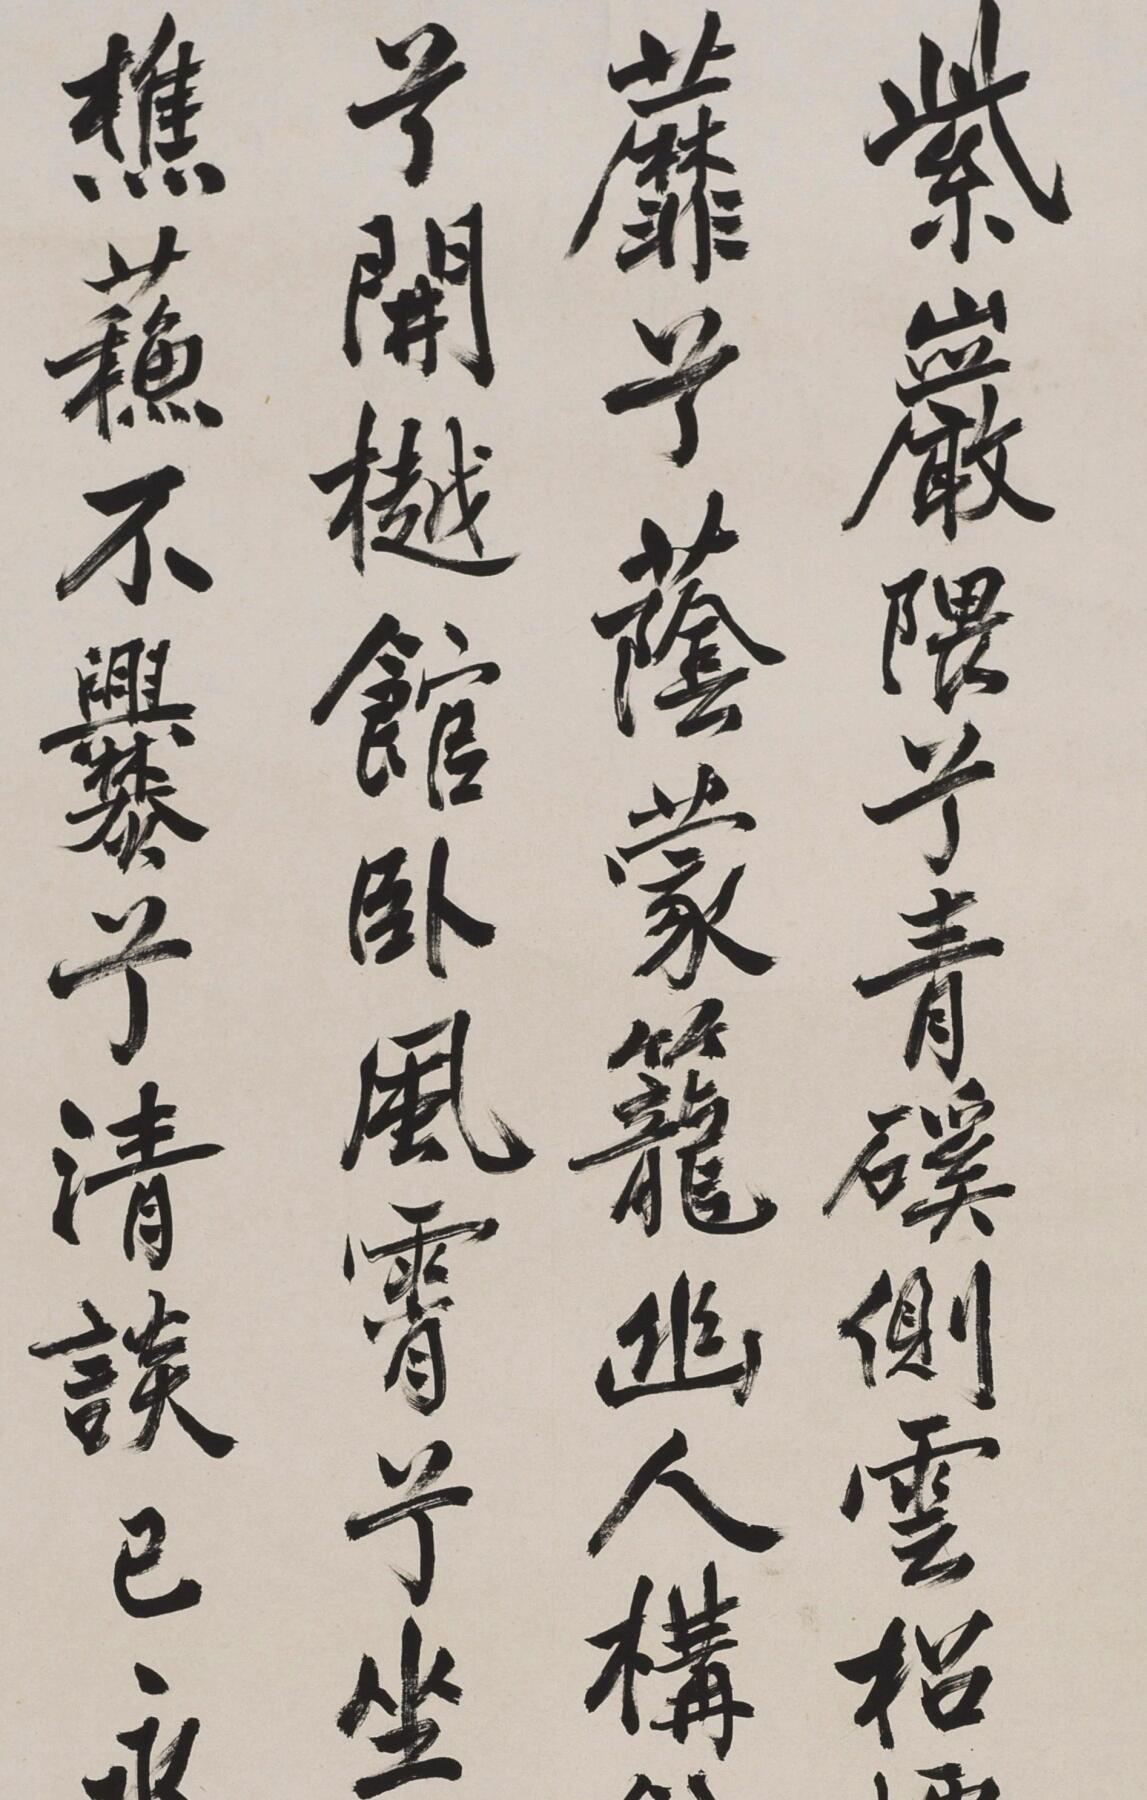 紫巖隈兮青磎側雲柗
蘼兮蔭蒙籠幽人構
兮開樾館卧風霄兮坐
樵蘓不爨兮清談已永